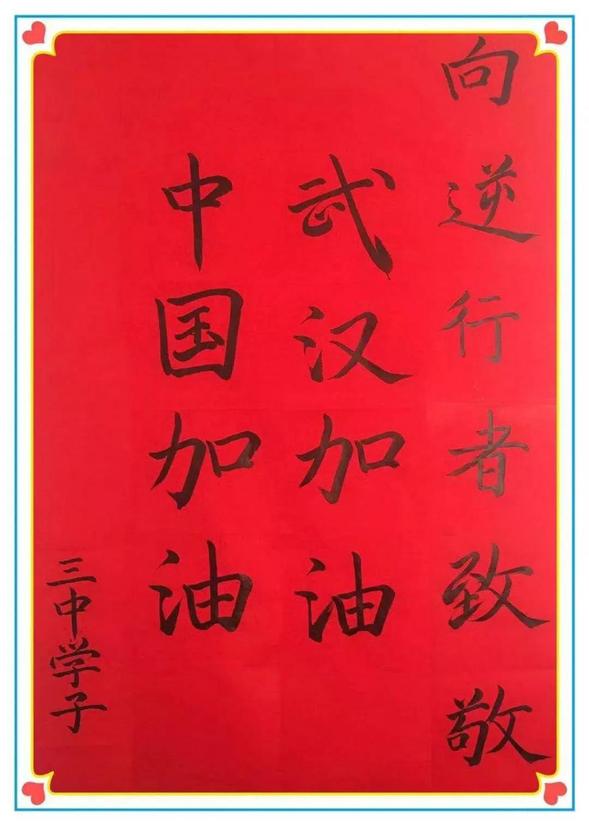 向逆行者致敬
武汉加油
中国加油
三中学子